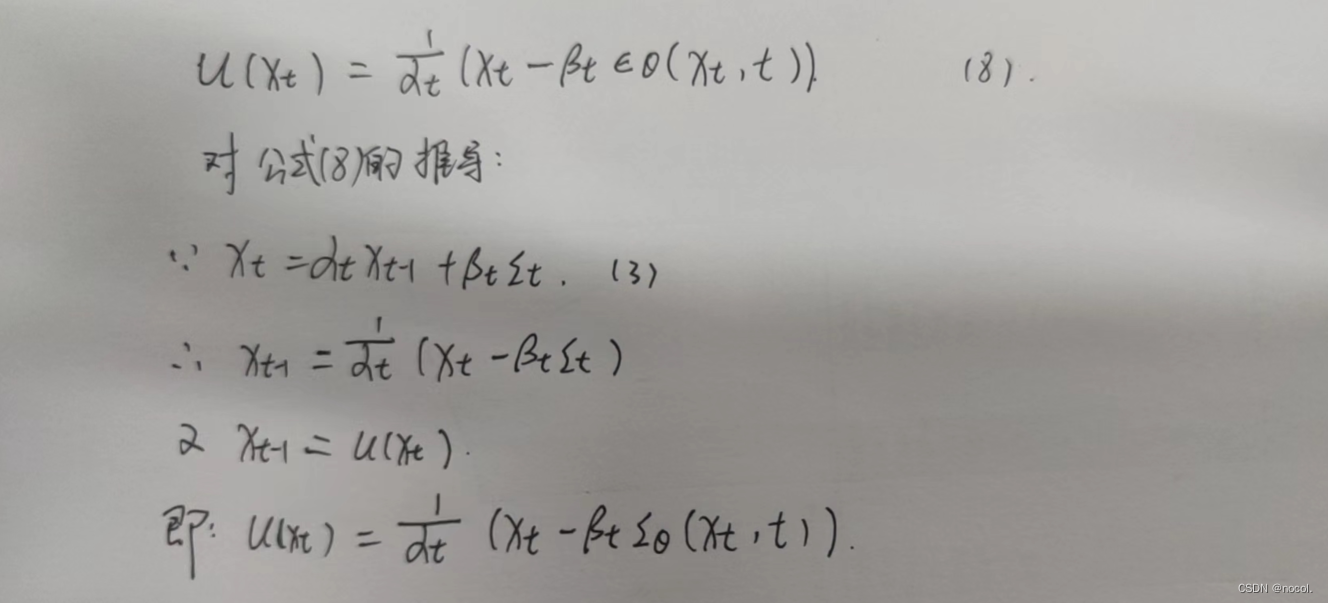 μ(xt) = 1/αt (xt − βt ϵθ(xt, t)). (8).
对公式(8)的推导:
∵ xt = αt xt-1 + βt Σt. (3)
∴ xt-1 = 1/αt (xt − βt Σt)
又 xt-1 = μ(xt).
即: μ(xt) = 1/αt (xt − βt Σθ(xt, t)).
CSDN @nocol.